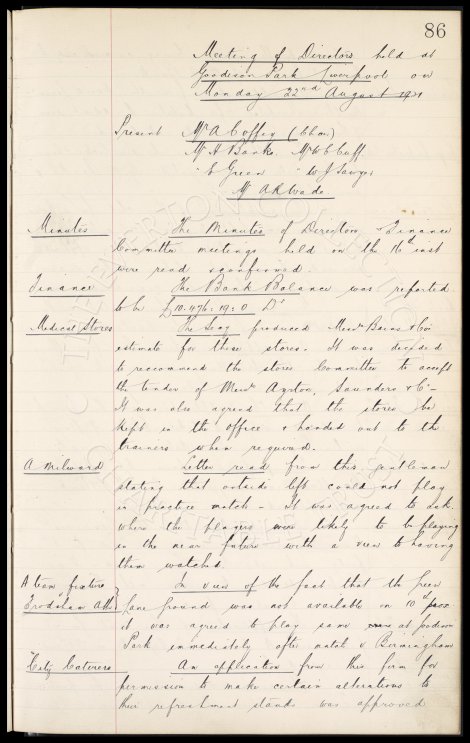 86
Meeting of Directors held at
Goodison Park Liverpool on
Monday 22nd August 1921
Present Mr A Coffey (Chair)
Mr H Banks, Mr W C Cuff
" E Green " W J Sawyer
Mr A R Wade
Minutes The Minutes of Directors & Finance
Committee meetings held on the 16th inst
were read & confirmed.
Finance The Bank Balance was reported
to be £10,476:19:0 Dr
Medical Stores The Secy produced Messrs & Co's
estimate for these stores. It was decided
to recommend the stores Committee to accept
the tender of Messrs Ayrton, Saunders & Co -
It was also agreed that the stores be
kept in the office & handed out to the
trainers when required.
A Milward Letter read from this gentleman
stating that outside left could not play
in practice match - It was agreed to ask
where the players were likely to be playing
in the near future with a view to having
them watched.
A team fixture In view of the fact that the
Frodsham Ath Lane ground was not available on 10th prox
it was agreed to play same at Goodison
Park immediately after match v Birmingham
City Caterers An application from this firm for
permission to make certain alterations to
their refreshment stands was approved
THE EVERTON COLLECTION